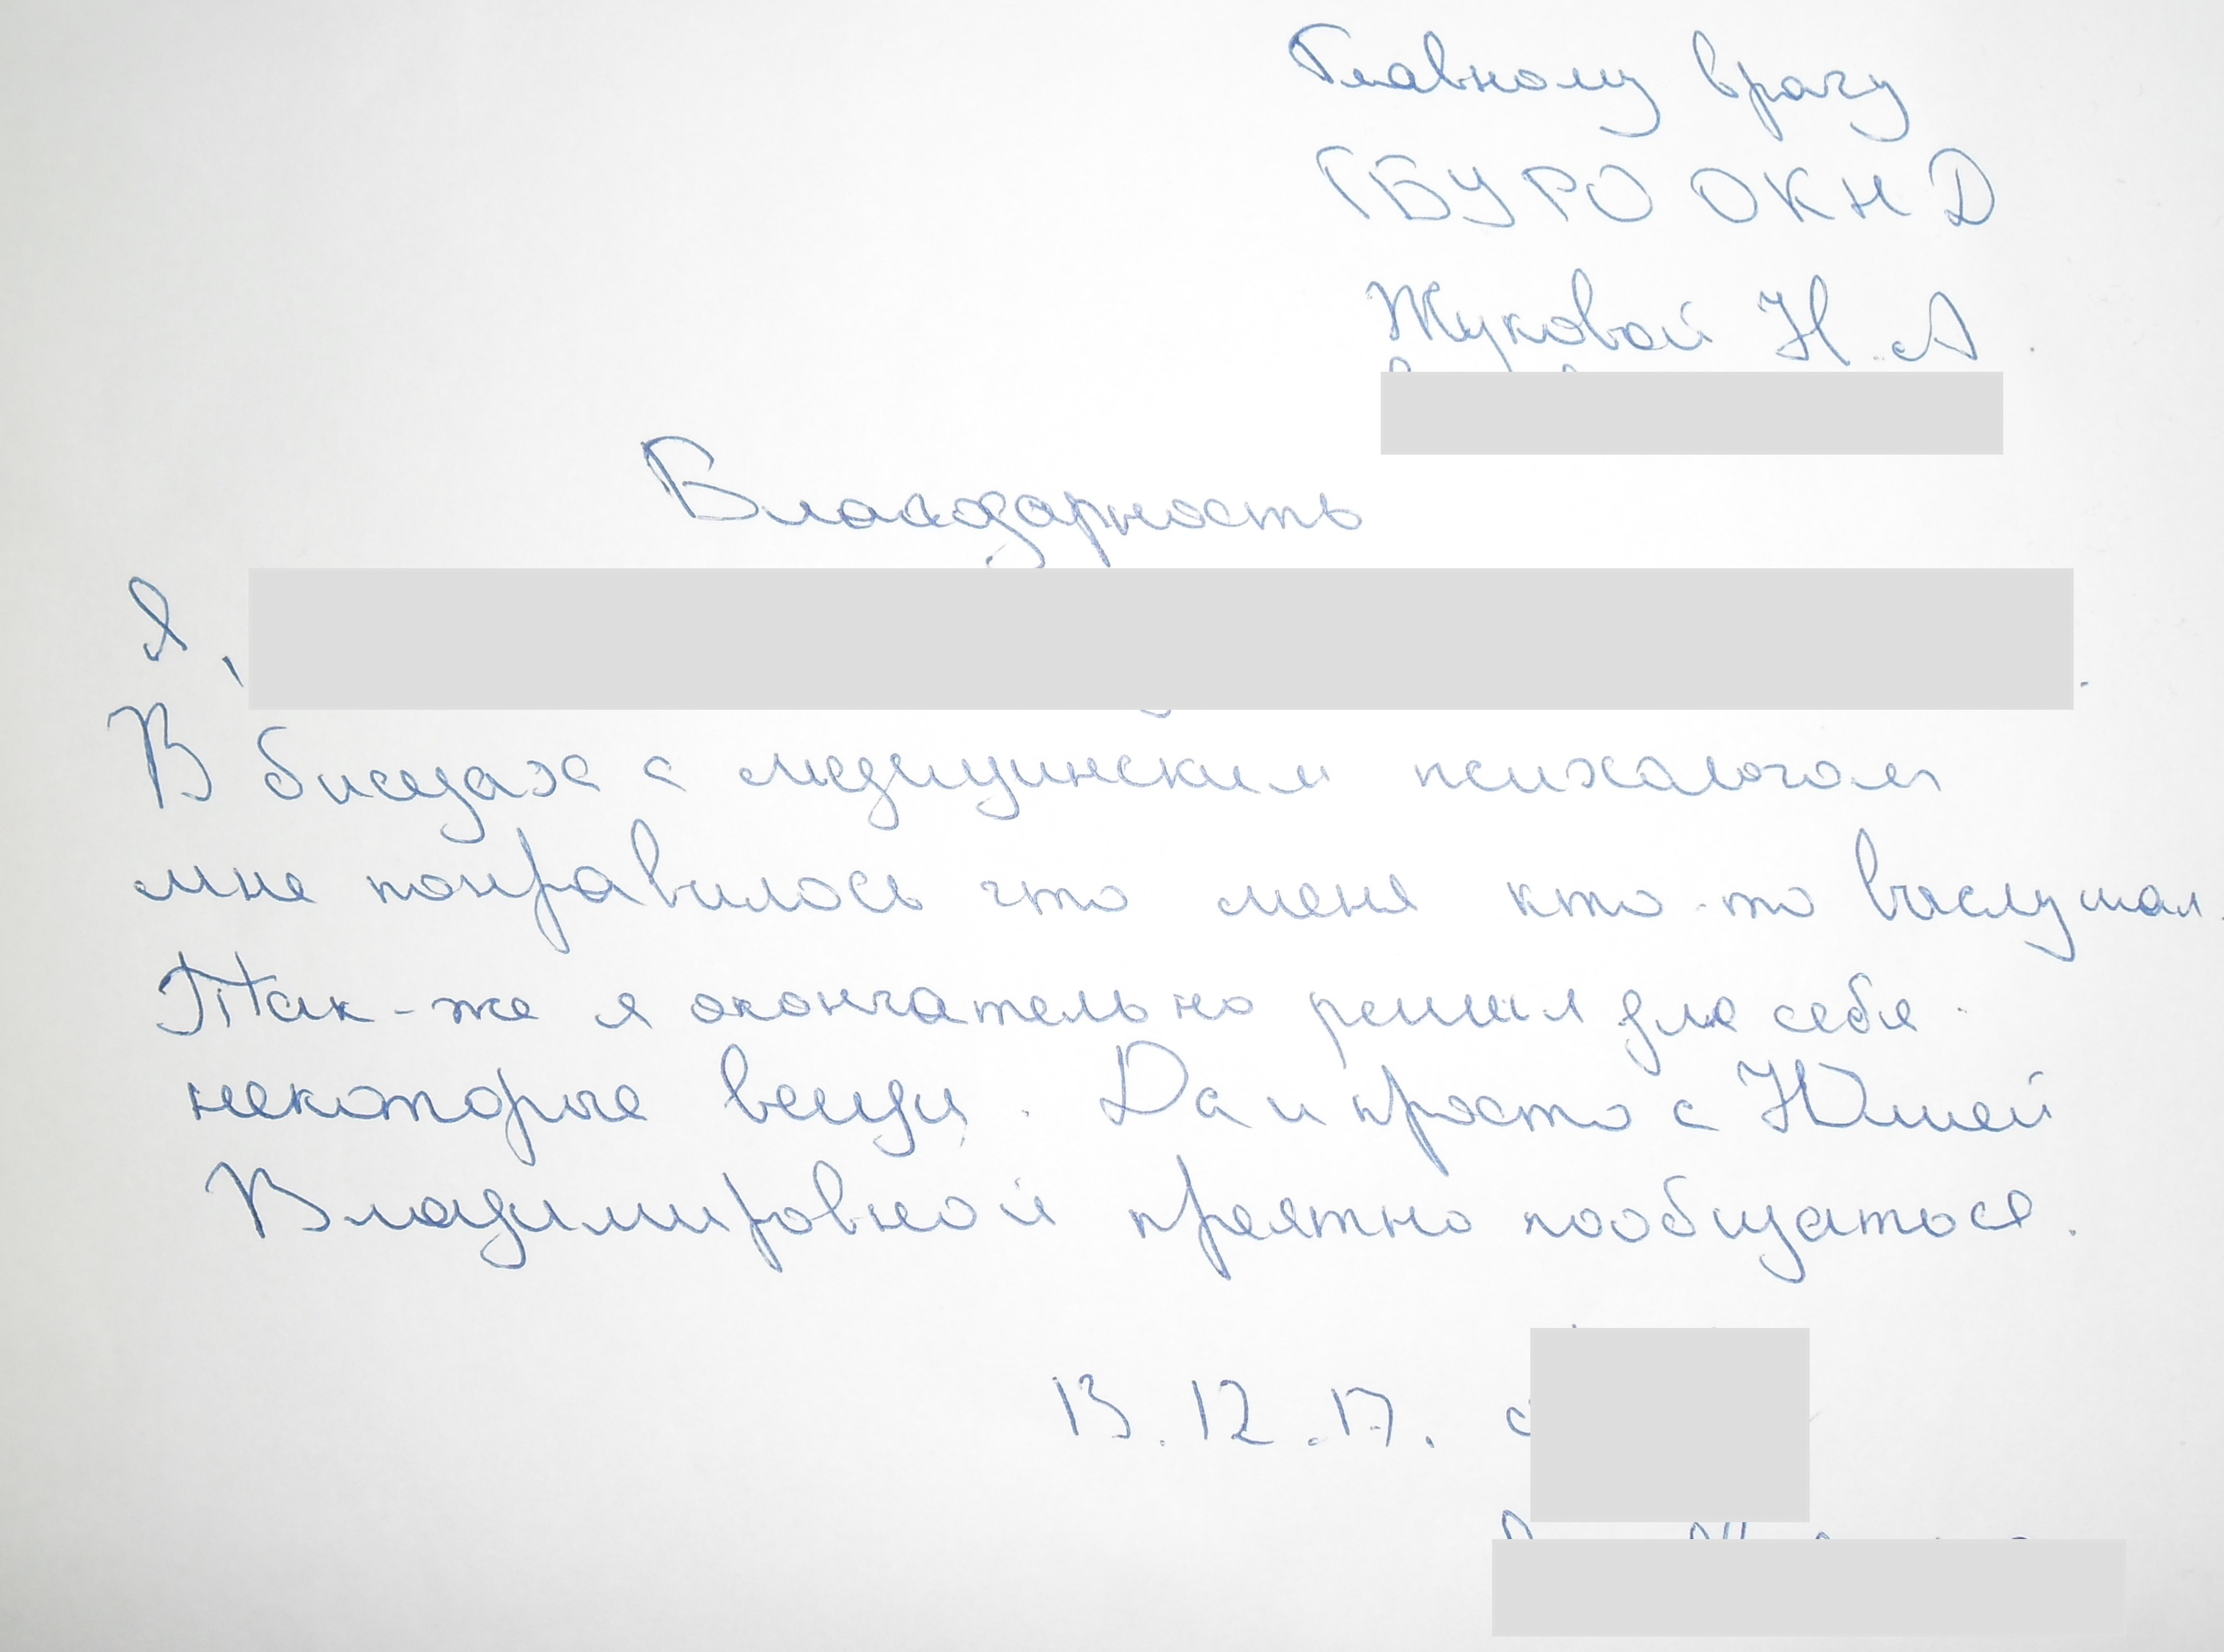 Главному врачу
ГБУ РО ОКНД
Жуковой Н.А.
Благодарность
Я,
В биседах с медецинским психологом
мне понравилось что меня кто-то выслушал.
Так-же я окончательно решил для себя
некоторые вещи. Да и просто с Юлией
Владимировной приятно пообщаться.
13.12.17.